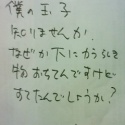 僕の玉子
知りませんか.
なぜか下にからしき
物おちてんですけど
すてたんでしょうか?